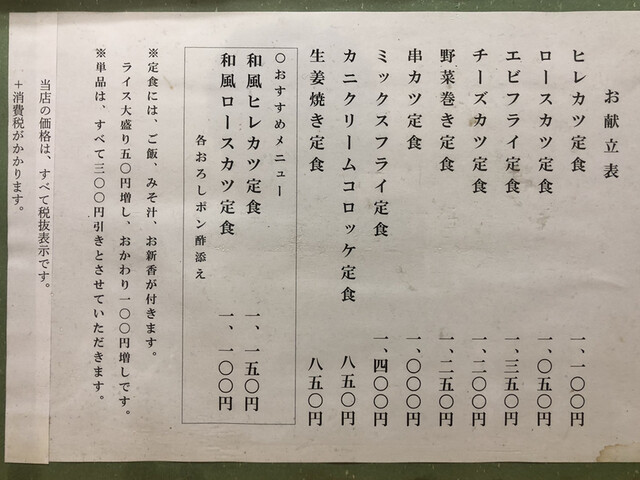 お献立表
ヒレカツ定食 一、一〇〇円
ロースカツ定食 一、〇五〇円
エビフライ定食 一、三五〇円
チーズカツ定食 一、二〇〇円
野菜巻き定食 一、二五〇円
串カツ定食 一、〇〇〇円
ミックスフライ定食 一、四〇〇円
カニクリームコロッケ定食 八五〇円
生姜焼き定食 八五〇円
〇おすすめメニュー
和風ヒレカツ定食 一、一五〇円
和風ロースカツ定食 一、一〇〇円
各おろしポン酢添え
※定食には、ご飯、みそ汁、お新香が付きます。
ライス大盛り五〇円増し、おかわり一〇〇円増しです。
※単品は、すべて三〇〇円引きとさせていただきます。
当店の価格は、すべて税抜表示です。
＋消費税がかかります。